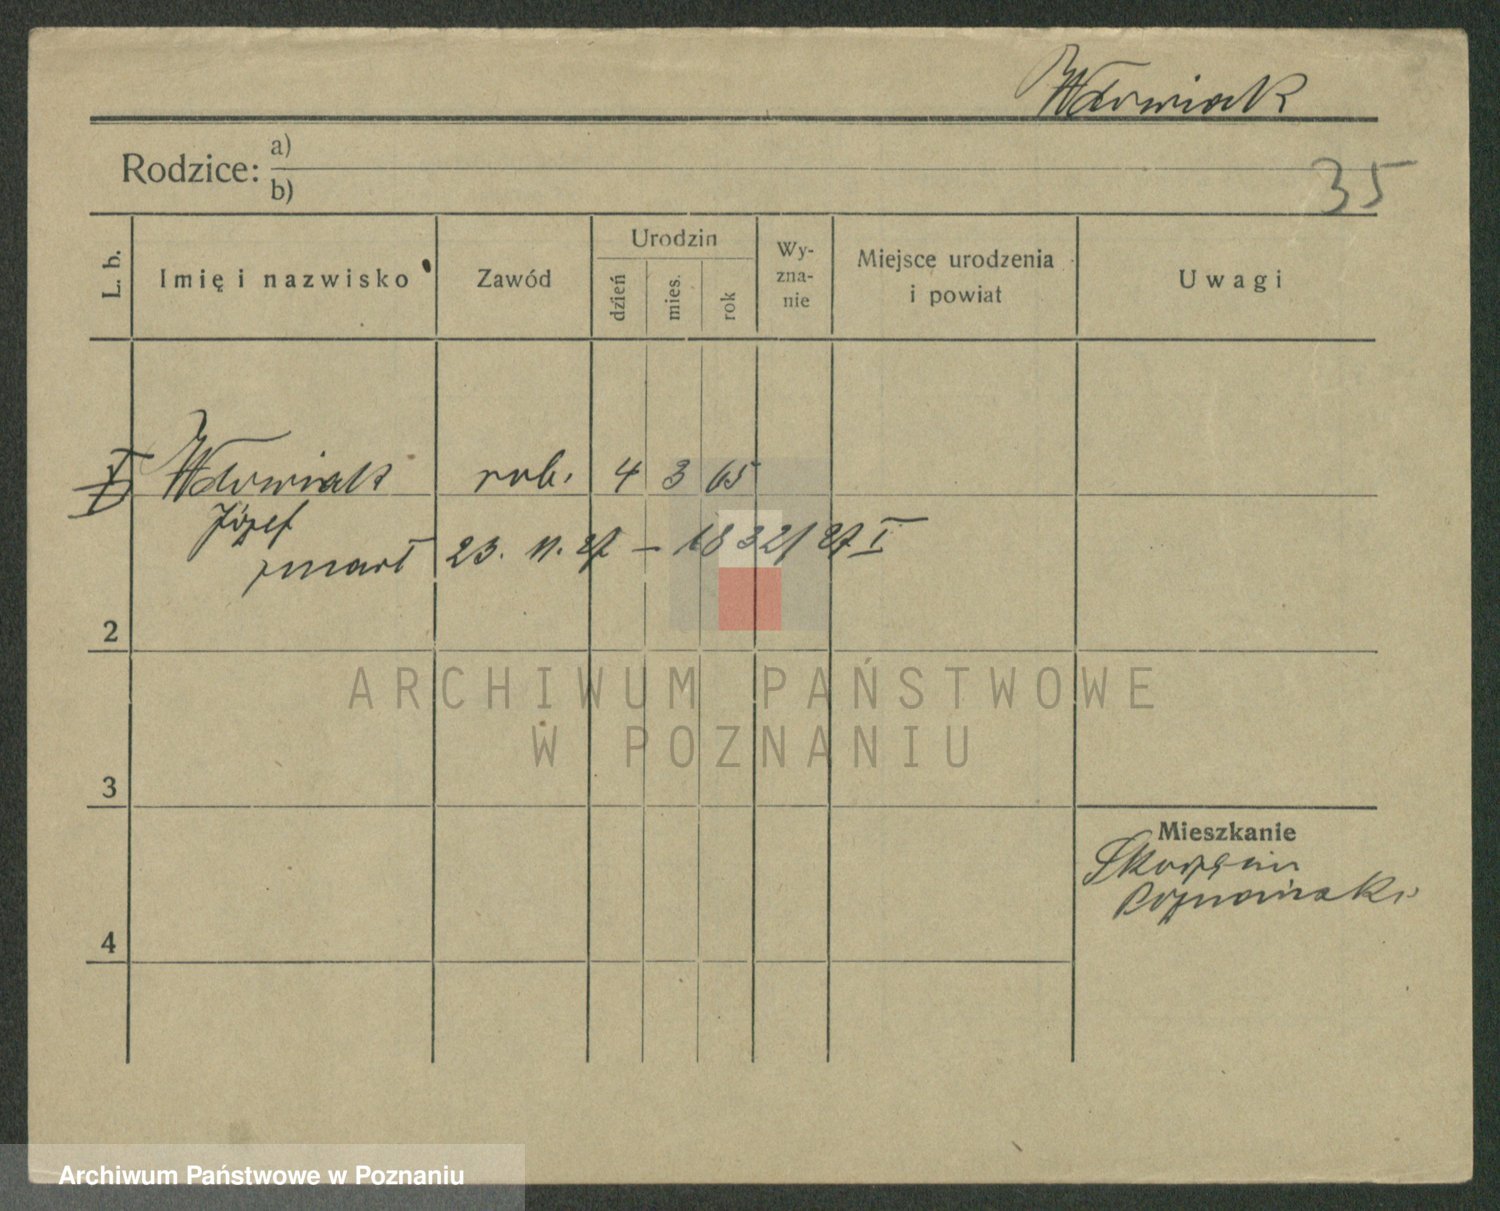 Wdowiak
Rodzice: a)
b)
35
L. b.
Imię i nazwisko
Zawód
Urodzin
dzień
mies.
rok
Wy-
zna-
nie
Miejsce urodzenia
i powiat
Uwagi
Wdowiak rob. 4 3 65
Józef
zmarł 23. 11. 27 – 1832/27 I
2
ARCHIWUM PAŃSTWOWE
W POZNANIU
3
Mieszkanie
4
Archiwum Państwowe w Poznaniu